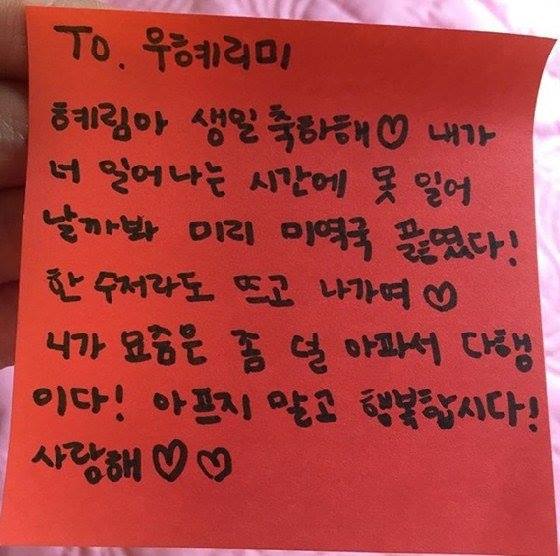 To. 우혜리미
혜림아 생일축하해♡ 내가
너 일어나는 시간에 못 일어
날까봐 미리 미역국 끓였다!
한 수저라도 뜨고 나가여♡
니가 요즘은 좀 덜 아파서 다행
이다! 아프지 말고 행복합시다!
사랑해♡♡